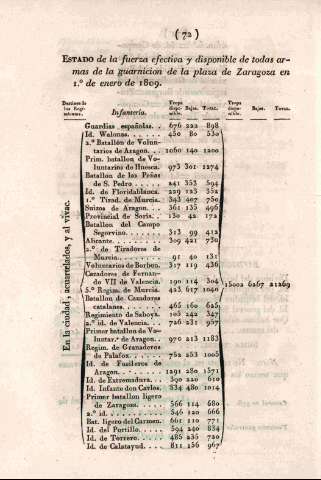 ( 72 )
ESTADO de la fuerza efectiva y disponible de todas ar-
mas de la guarnicion de la plaza de Zaragoza en
1.º de enero de 1809.
Destinos de los Regimientos. Infantería. Tropa disponible. Bajas. Total. Tropa disponible. Bajas. Total.
En la ciudad, acuartelados, y al vivac.
Guardias españolas. . 676 222 898
Id. Walonas. . . . . 450 80 530
2.º Batallón de Volun-
tarios de Aragon. . . 1060 140 1200
Prim. batallon de Vo-
luntarios de Huesca. 973 301 1274
Batallon de las Peñas
de S. Pedro . . . . . 241 353 594
Id. de Floridablanca. 229 123 352
1.º Tirad. de Murcia. 343 407 750
Suizos de Aragon. . . 361 135 496
Provincial de Soria. . 130 42 172
Batallon del Campo
Segorvino. . . . . . 313 99 412
Alicante. . . . . . . 309 421 730
2.º de Tiradores de
Murcia. . . . . . . 91 40 131
Voluntarios de Borbon. 317 119 436
Cazadores de Fernan-
do VII de Valencia. 190 114 304
5.º Regim. de Murcia. 423 617 1040
15002 6267 21269
Batallon de Cazadores
catalanes. . . . . . 465 160 625
Regimiento de Saboya. 105 242 347
2.º id. de Valencia. . 726 231 957
Primer batallon de Vo-
luntar.s de Aragon. . 970 213 1183
Regim. de Granaderos
de Palafox. . . . . . 752 253 1005
Id. de Fusileros de
Aragon. . . . . . . 1291 280 1571
Id. de Extremadura. . 390 220 610
Id. Infante don Carlos. 534 480 1014
Primer batallon ligero
de Zaragoza. . . . . 566 114 680
2.º id. . . . . . . . 546 120 666
Bat. ligero del Carmen. 661 110 771
Id. del Portillo. . . . 594 240 834
Id. de Torrero. . . . 485 235 720
Id. de Calatayud. . . 811 156 967